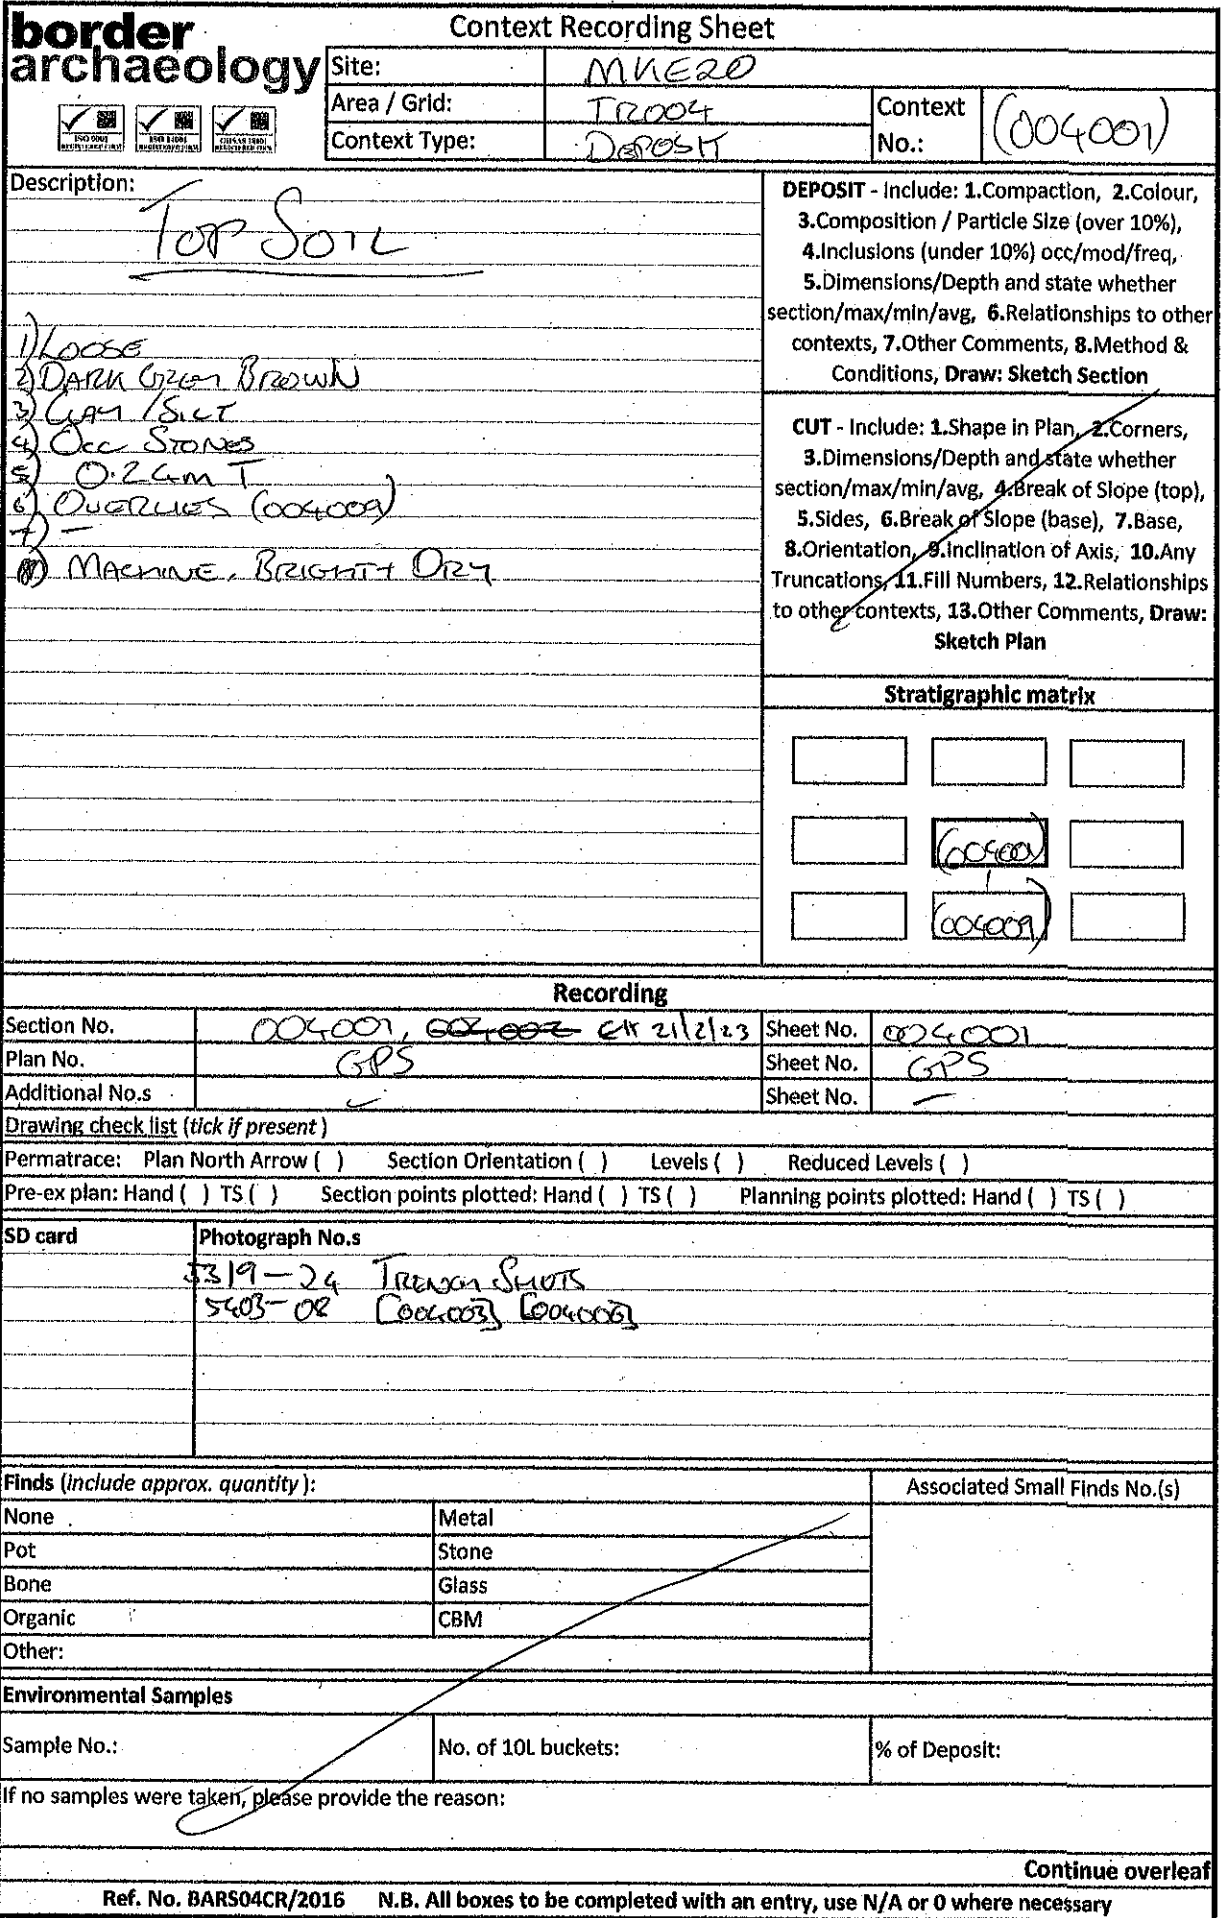 border
archaeology
Context Recording Sheet
Site: MKE20
Area / Grid: TR004
Context Type: DEPOSIT
Context No.: (004001)
ISO 9001
Description:
TOP SOIL
1) LOOSE
2) DARK GREY BROWN
3) CLAY / SILT
4) OCC STONES
5) 0.24m T
6) OVERLIES (004009)
7) —
8) MACHINE, BRIGHT + DRY
DEPOSIT - Include: 1.Compaction, 2.Colour,
3.Composition / Particle Size (over 10%),
4.Inclusions (under 10%) occ/mod/freq,
5.Dimensions/Depth and state whether
section/max/min/avg, 6.Relationships to other
contexts, 7.Other Comments, 8.Method &
Conditions, Draw: Sketch Section
CUT - Include: 1.Shape in Plan, 2.Corners,
3.Dimensions/Depth and state whether
section/max/min/avg, 4.Break of Slope (top),
5.Sides, 6.Break of Slope (base), 7.Base,
8.Orientation, 9.Inclination of Axis, 10.Any
Truncations, 11.Fill Numbers, 12.Relationships
to other contexts, 13.Other Comments, Draw:
Sketch Plan
Stratigraphic matrix
(004001)
(004009)
Recording
Section No. 004001, 004002 21/2/23 Sheet No. 004001
Plan No. GPS Sheet No. GPS
Additional No.s — Sheet No. —
Drawing check list (tick if present)
Permatrace: Plan North Arrow ( ) Section Orientation ( ) Levels ( ) Reduced Levels ( )
Pre-ex plan: Hand ( ) TS ( ) Section points plotted: Hand ( ) TS ( ) Planning points plotted: Hand ( ) TS ( )
SD card Photograph No.s
5319-24 TRENCH SHOTS
5403-08 [004003] [004006]
Finds (include approx. quantity): Associated Small Finds No.(s)
None Metal
Pot Stone
Bone Glass
Organic CBM
Other:
Environmental Samples
Sample No.: No. of 10L buckets: % of Deposit:
If no samples were taken, please provide the reason:
Continue overleaf
Ref. No. BARS04CR/2016 N.B. All boxes to be completed with an entry, use N/A or 0 where necessary